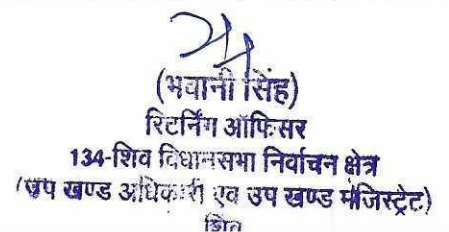 (भवानी सिंह)
रिटर्निंग ऑफिसर
134-शिव विधानसभा निर्वाचन क्षेत्र
(उप खण्ड अधिकारी एवं उप खण्ड मजिस्ट्रेट)
शिव